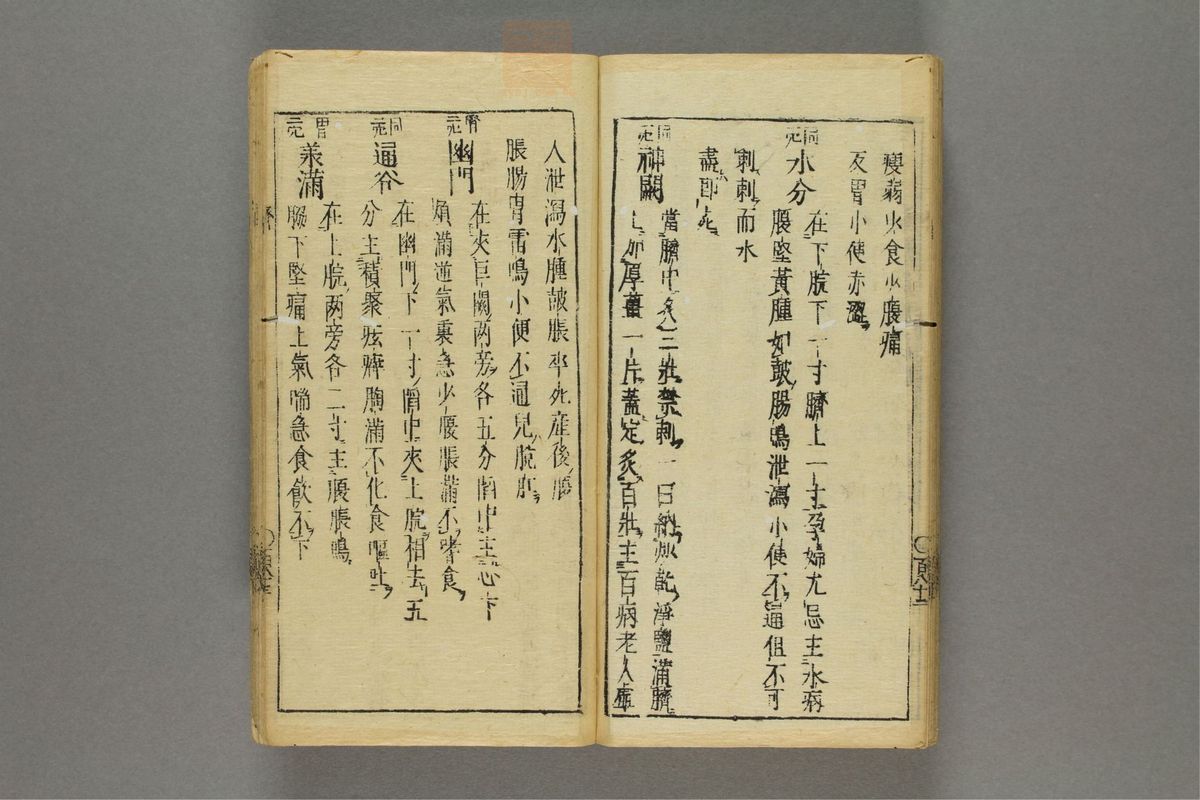 瘦弱少食少腹痛
反胃小便赤澀
同冗
水分
在下脘下一寸臍上一寸孕婦尤忌主水病
腹堅黃腫如皷腸鳴泄瀉小便不通但不可
刺刺而水
盡即死
同冗
神闕
當臍中灸三壯禁刺一曰納炒乾淨鹽滿臍
上加厚薑一片蓋定灸百壯主百病老人虛
人泄瀉水腫皷脹卒死産後腹
脹腸胃雷鳴小便不通兒脫肛
腎冗
幽門
在夾巨闕兩旁各五分陷中主心下
煩滿逆氣裏急少腹脹滿不嗜食
同冗
通谷
在幽門下一寸陷中夾上脘相去五
分主積聚痃癖胸滿不化食嘔吐
胃冗
羕滿
在上脘兩旁各二寸主腹脹鳴
脇下堅痛上氣喘急食飲不下